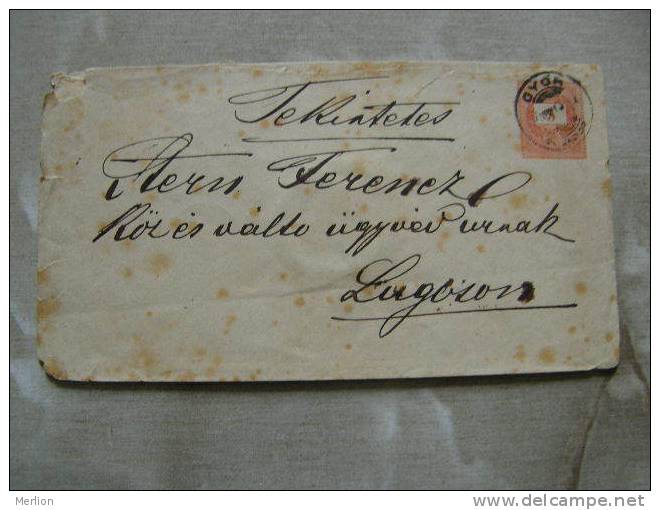 GYŐR
Tekintetes
Stern Ferencz
Köz és váltó ügyvéd urnak
Lugoson
Merlion
www.delcampe.net